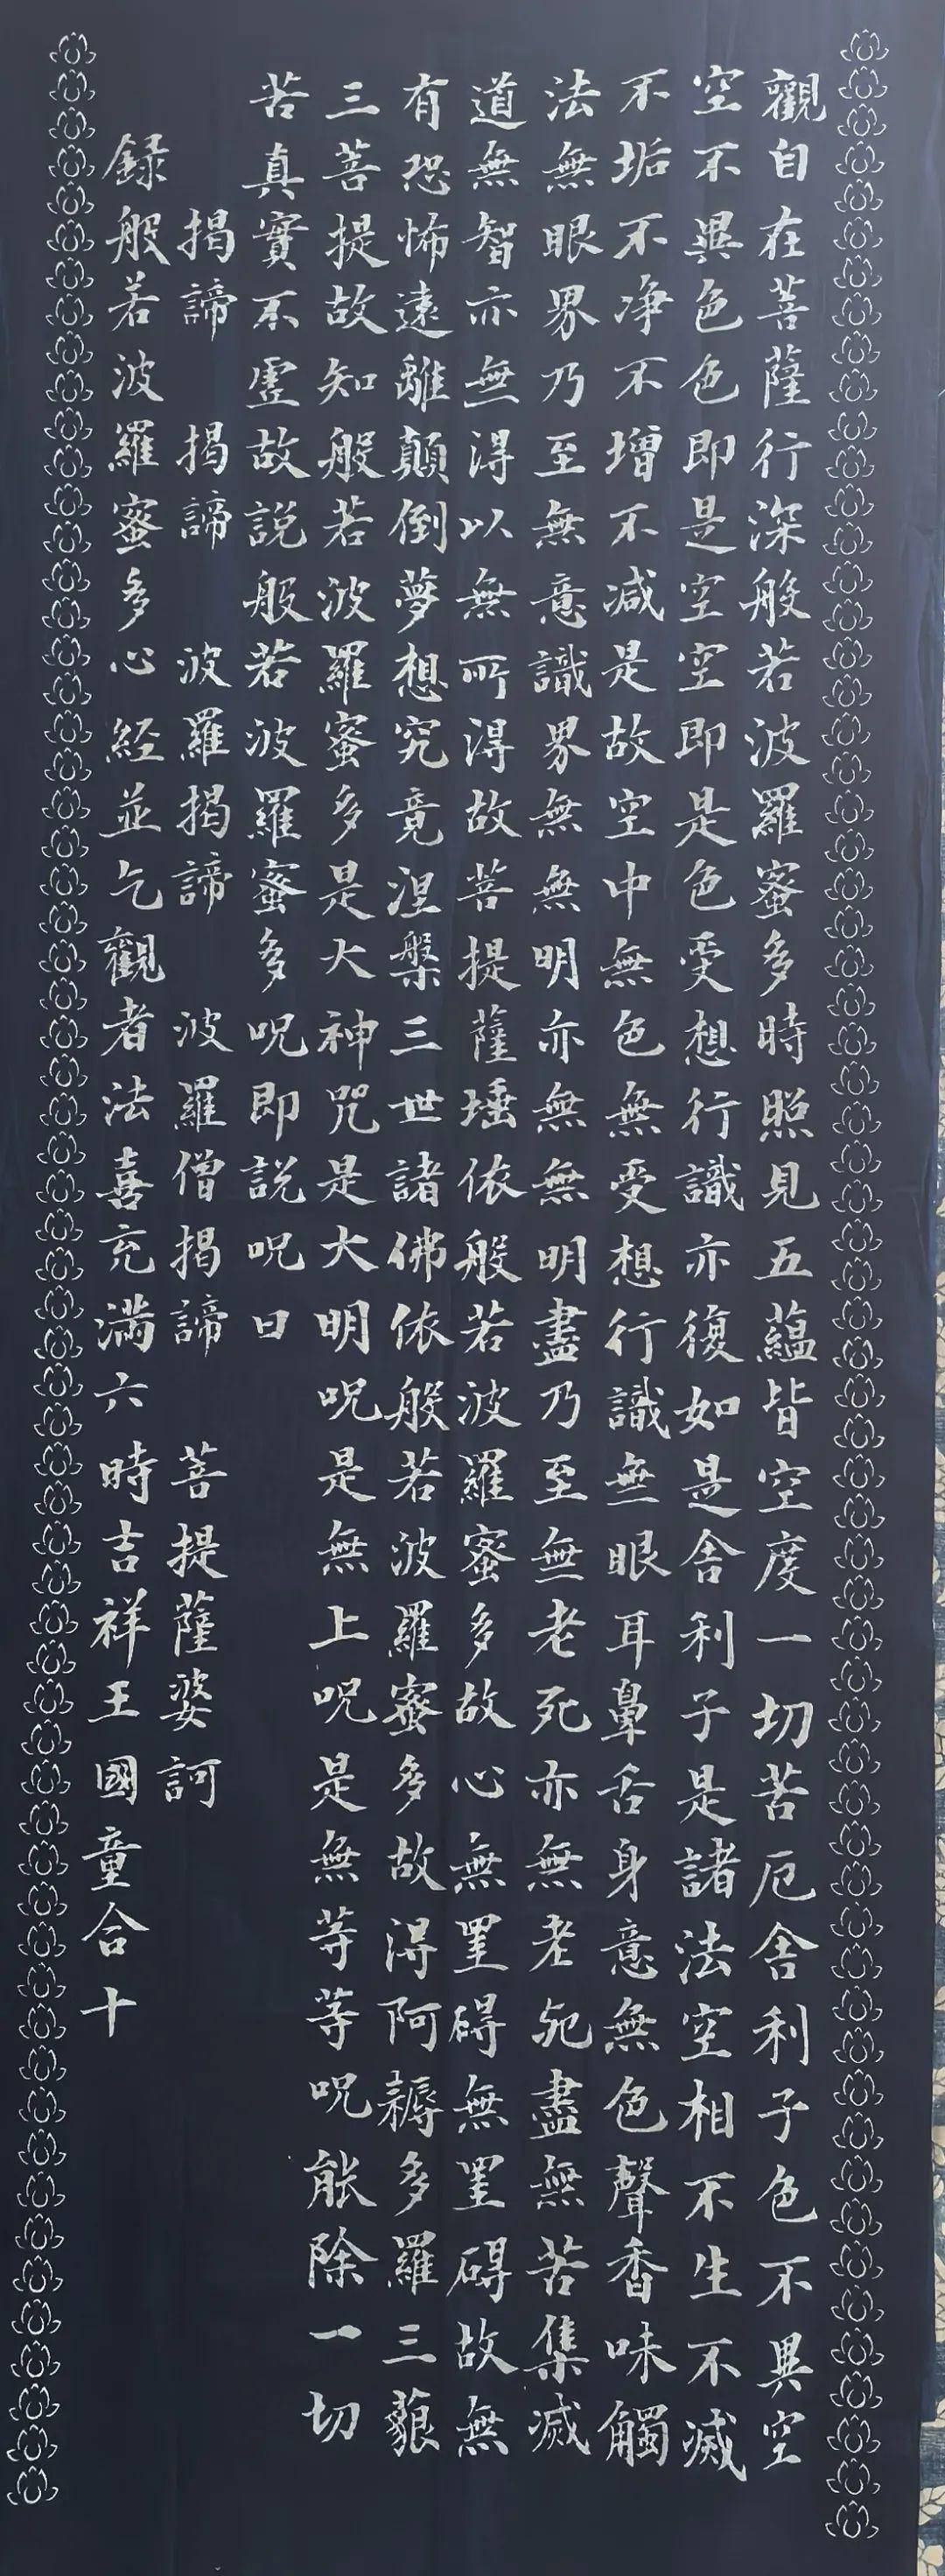 觀自在菩薩行深般若波羅蜜多時照見五蘊皆空度一切苦厄舍利子色不異空
空不異色色即是空空即是色受想行識亦復如是舍利子是諸法空相不生不滅
不垢不净不增不减是故空中無色無受想行識無眼耳鼻舌身意無色聲香味觸
法無眼界乃至無意識界無無明亦無無明盡乃至無老死亦無老死盡無苦集滅
道無智亦無得以無所得故菩提薩埵依般若波羅蜜多故心無罣碍無罣碍故無
有恐怖遠離顛倒夢想究竟涅槃三世諸佛依般若波羅蜜多故得阿耨多羅三藐
三菩提故知般若波羅蜜多是大神咒是大明呪是無上呪是無等等呪能除一切
苦真實不虛故説般若波羅蜜多呪即説呪曰
揭諦 揭諦 波羅揭諦 波羅僧揭諦 菩提薩婆訶
録般若波羅蜜多心経並乞觀者法喜充滿六時吉祥王國童合十